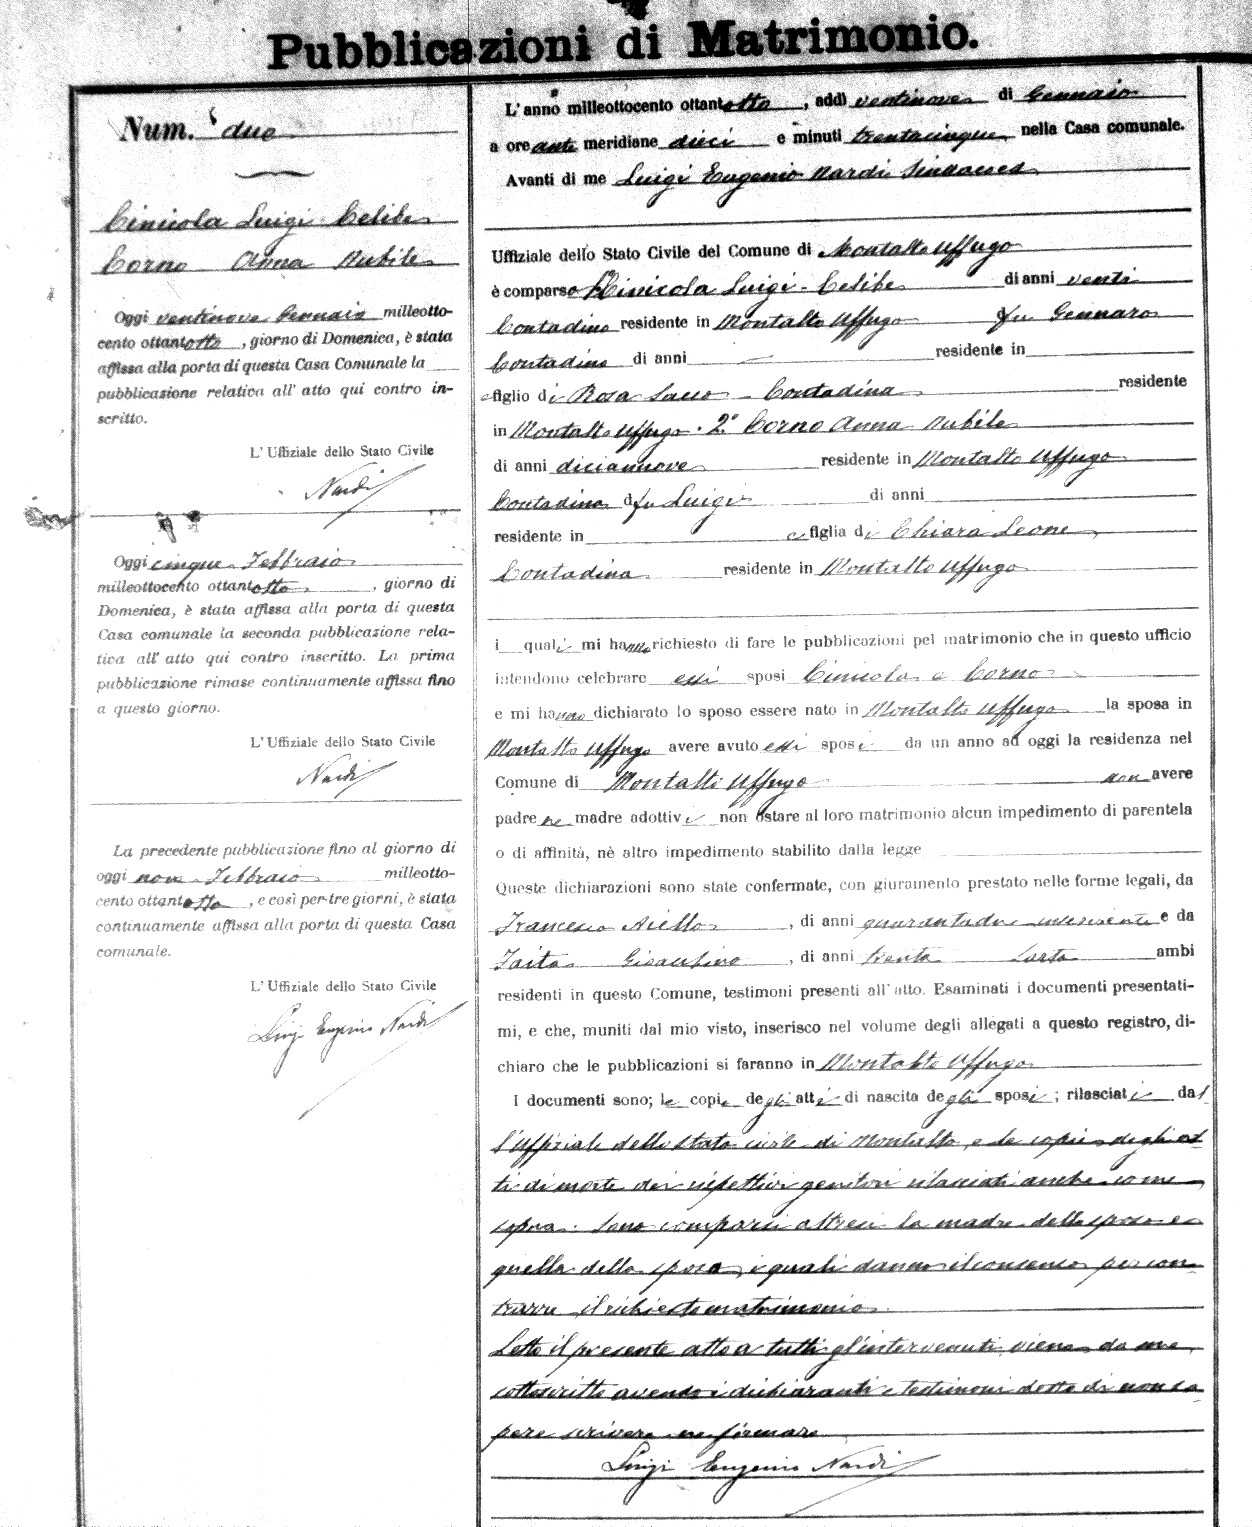 Pubblicazioni di Matrimonio.
Num. due
Cinicola Luigi Celibe
Corno Anna Nubile
Oggi ventinove Gennaio milleotto-
cento ottantotto, giorno di Domenica, è stata
affissa alla porta di questa Casa Comunale la
pubblicazione relativa all' atto qui contro in-
scritto.
L' Uffiziale dello Stato Civile
Nardi
Oggi cinque Febbraio
milleottocento ottantotto, giorno di
Domenica, è stata affissa alla porta di questa
Casa comunale la seconda pubblicazione rela-
tiva all' atto qui contro inscritto. La prima
pubblicazione rimase continuamente affissa fino
a questo giorno.
L' Uffiziale dello Stato Civile
Nardi
La precedente pubblicazione fino al giorno di
oggi nove Febbraio milleotto-
cento ottantotto, e così per tre giorni, è stata
continuamente affissa alla porta di questa Casa
comunale.
L' Uffiziale dello Stato Civile
Luigi Eugenio Nardi
L' anno milleottocento ottantotto, addì ventinove di Gennaio
a ore anti meridiane dieci e minuti trentacinque, nella Casa comunale.
Avanti di me Luigi Eugenio Nardi Sindaco
Uffiziale dello Stato Civile del Comune di Montalto Uffugo
è comparso Cinicola Luigi - Celibe di anni venti
Contadino residente in Montalto Uffugo fu Gennaro
Contadino di anni residente in
e figlio di Rosa Sacco - Contadina residente
in Montalto Uffugo. 2° Corno Anna Nubile
di anni diciannove residente in Montalto Uffugo
Contadina di fu Luigi di anni
residente in e figlia di Chiara Leone
Contadina residente in Montalto Uffugo
i quali mi hanno richiesto di fare le pubblicazioni pel matrimonio che in questo ufficio
intendono celebrare essi sposi Cinicola e Corno
e mi hanno dichiarato lo sposo essere nato in Montalto Uffugo la sposa in
Montalto Uffugo avere avuto essi sposi da un anno ad oggi la residenza nel
Comune di Montalto Uffugo non avere
padre ne madre adottivi non ostare al loro matrimonio alcun impedimento di parentela
o di affinità, nè altro impedimento stabilito dalla legge
Queste dichiarazioni sono state confermate, con giuramento prestato nelle forme legali, da
Francesco Aiello, di anni quarantadue inserviente e da
Faita, di anni trenta Sarto ambi
residenti in questo Comune, testimoni presenti all' atto. Esaminati i documenti presentati-
mi, e che, muniti dal mio visto, inserisco nel volume degli allegati a questo registro, di-
chiaro che le pubblicazioni si faranno in Montalto Uffugo
I documenti sono; le copie degli atti di nascita degli sposi; rilasciati dal
l'Uffiziale dello stato civile di Montalto, e le copie degli at
ti di morte dei rispettivi genitori rilasciati anche come
sopra. Sono comparsi altresi la madre dello sposo e
quella della sposa, i quali danno il consenso per con
trarre il richiesto matrimonio.
Letto il presente atto a tutti gl'intervenuti, viene da me
sottoscritto avendo i dichiaranti e testimoni detto di non sa
pere scrivere ne firmare
Luigi Eugenio Nardi